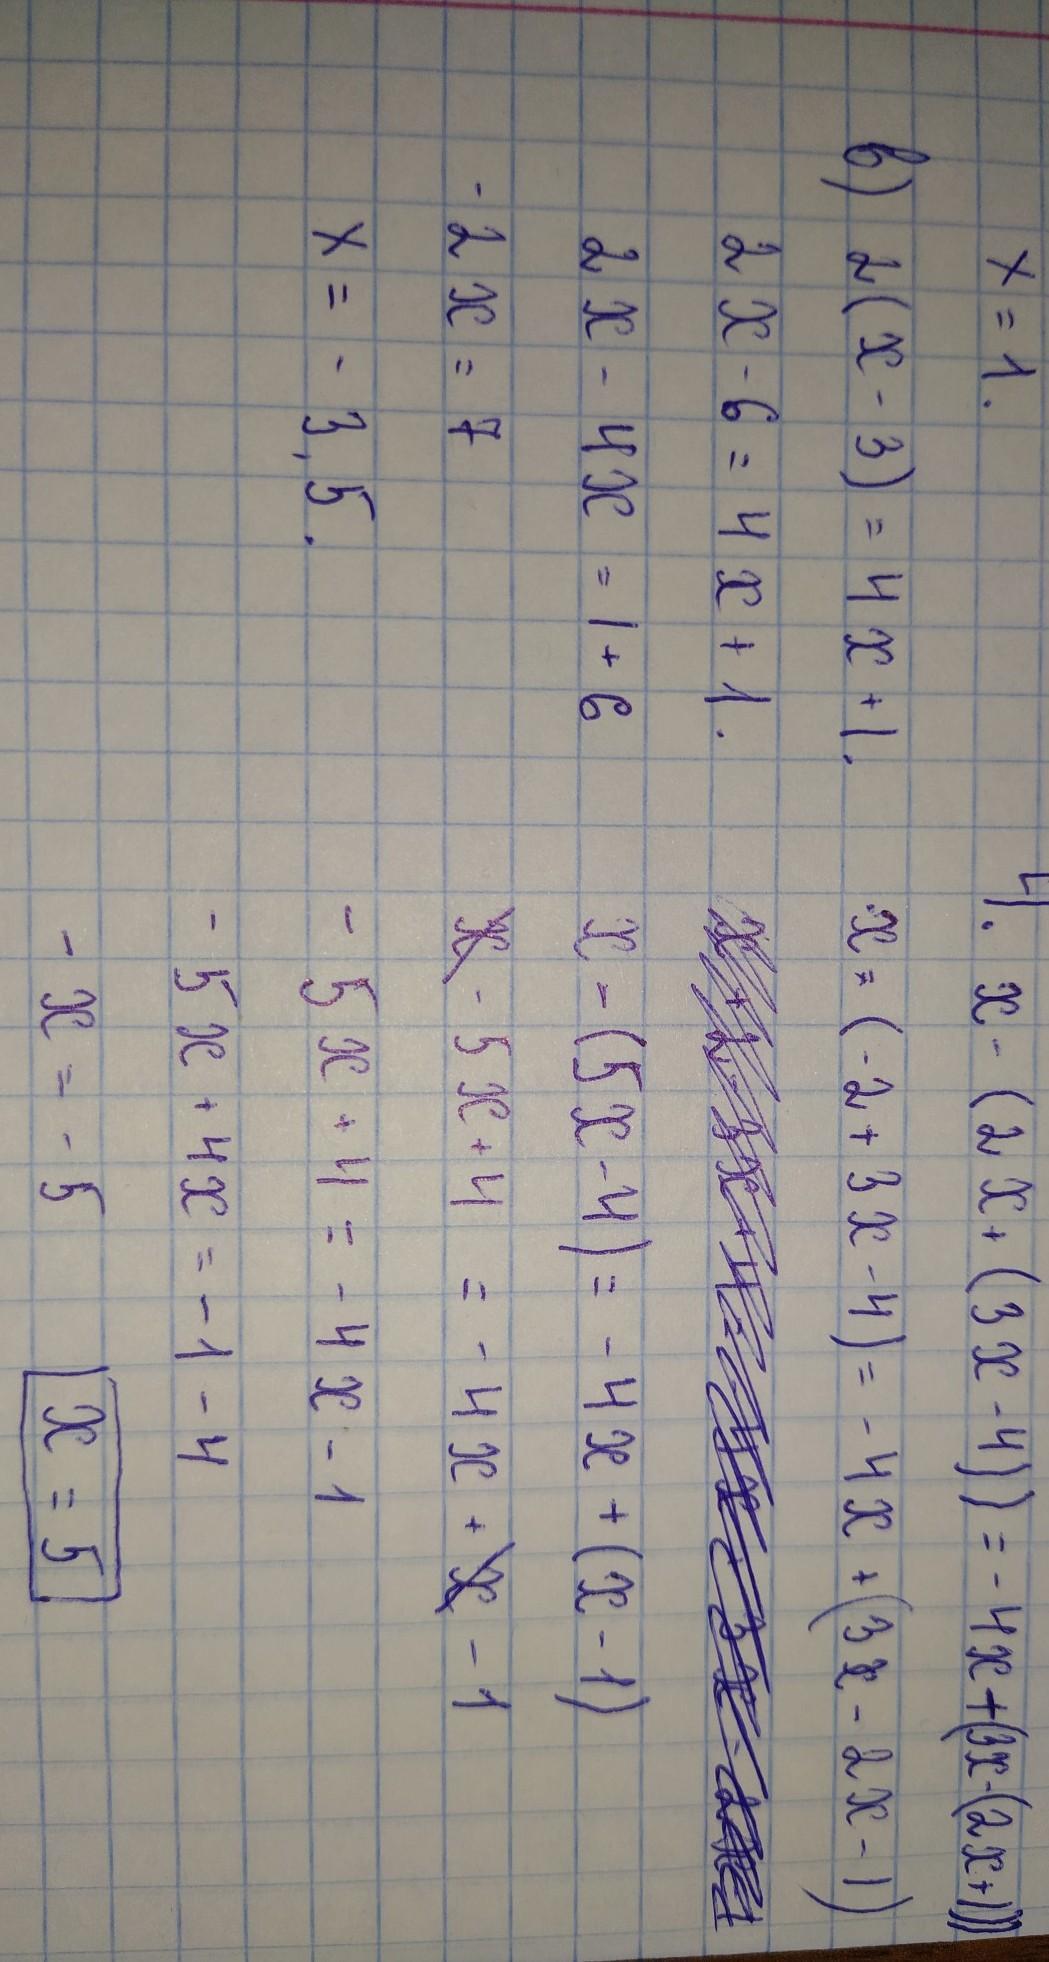 x = 1.
в) 2(x - 3) = 4x + 1.
2x - 6 = 4x + 1.
2x - 4x = 1 + 6
- 2x = 7
x = - 3,5.
4. x - (2x + (3x - 4)) = - 4x + (3x - (2x + 1)))
x = (- 2 + 3x - 4) = - 4x + (3x - 2x - 1)
x - (5x - 4) = - 4x + (x - 1)
x - 5x + 4 = - 4x + x - 1
- 5x + 4 = - 4x - 1
- 5x + 4x = - 1 - 4
- x = - 5
x = 5